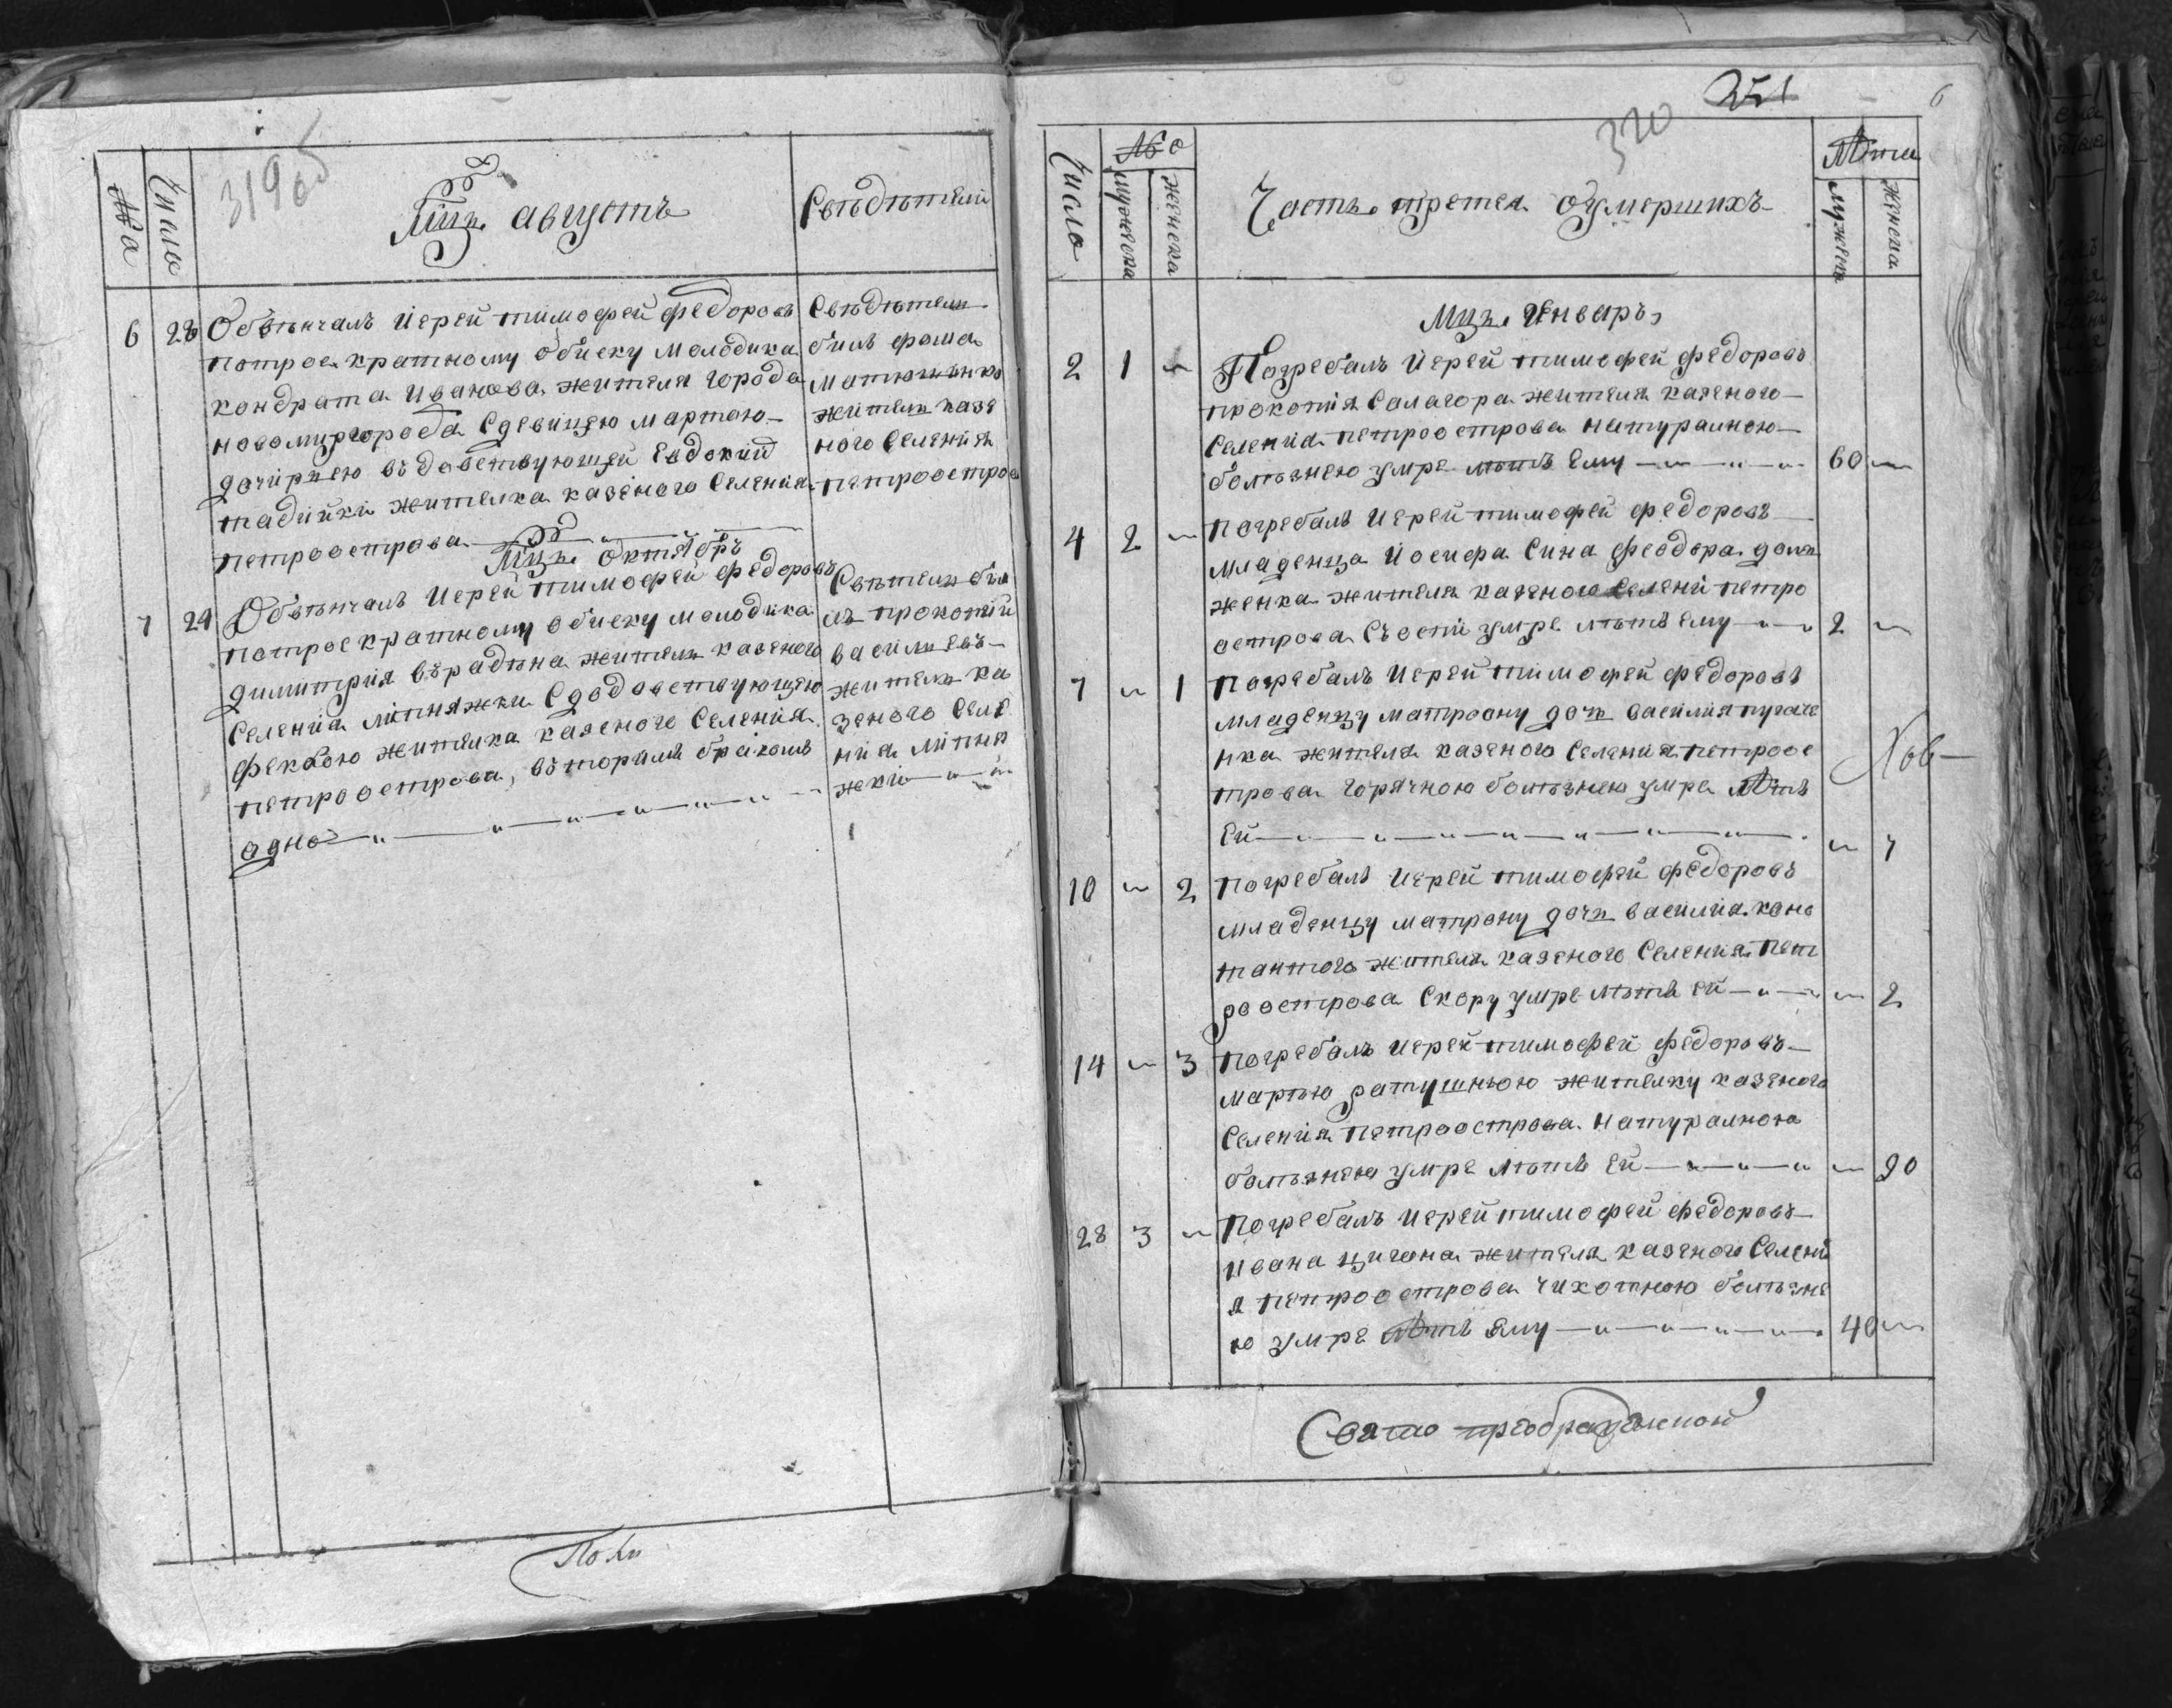 319об
№о
Число
Мцъ августъ
Свѣдѣтели
6
28
Обвѣнчалъ Иерей тимофей федоровъ
потрое кратному обиску молодика
кондрата Иванова жителя города
новомиргорода Сдевицею мартою
дочирнею въдовствующей Евдокий
тадийки жителка казеного Селения
петроострова
Свѣдѣтели
билъ фома
Матюшинко
жители казе
ного Селения
петроостров
Мцъ Октябръ
7
29
Обвѣнчалъ Иерей тимофей федоровъ
потрое кратному обиску молодика
димитрия върадѣна жители казеного
Селения липняжки Сдовдовствующею
феклою жителка казеного Селения
петроострова, въторимъ бракомъ
одно
Свѣтели би
лъ прокопий
василиевъ
житель ка
зеного Селе
ния липня
жки
По Ли
251
320
6
Число
№о
мужеска
женска
Часть третея оумершихъ
Лѣта
мужеска
женска
Мцъ Январъ
2 1
Погребалъ Иерей тимофей федоровъ
прокопия Салагора жителя казеного
Селения петроострова натуралною
болѣзнею умре лѣтъ Ему 60
4 2
Погребалъ Иерей тимофей федоровъ
младенца Иосифа Сина феодора
женка жителя казеного Селени петро
острова Съоспи умре лѣтъ Ему 2
7 1
Погребалъ Иерей тимофей федоровъ
младенцу матрону дочь василия пугаче
нка жителя казеного Селения петроос
трова горячною болѣзнею умре Лѣтъ
Ей 7
10 2
Погребалъ Иерей тимофей федоровъ
младенцу матрону дочь василия конс
тантого жителя казеного Селения пет
роострова Скору умре лѣтъ ей 2
14 3
Погребалъ Иерей тимофей федоровъ
марѳю ратушнюю жителку казеного
Селения петроострова натуралною
болѣзнею умре лѣтъ Ей 90
28 3
Погребалъ Иерей тимофей федоровъ
Ивана цигана жителя казеного Селени
я петроострова чихотною болѣзне
ю умре Лѣтъ Ему 40
Свято преображенской